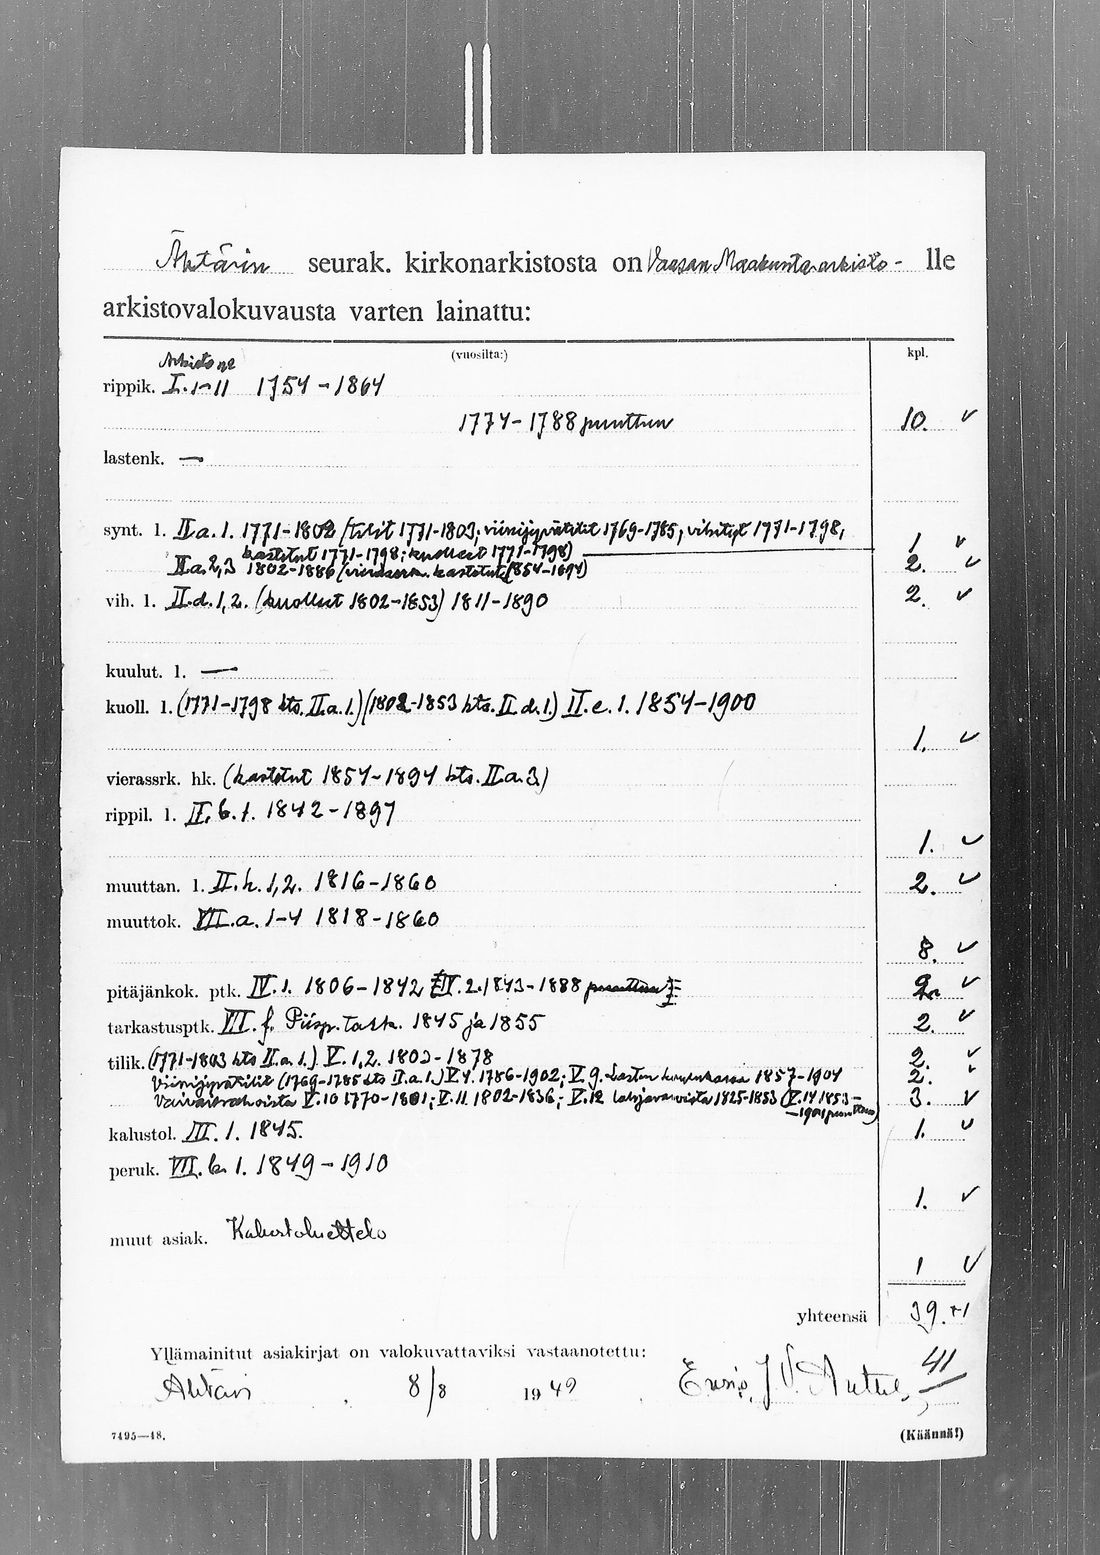 Ähtärin seurak. kirkonarkistosta on Vaasan Maakunta-arkisto - lle
arkistovalokuvausta varten lainattu:
(vuosilta:) kpl.
Arkisto no
rippik. I. 1-11 1754-1864
1774-1788 puuttuu 10. v
lastenk. —
synt. l. II a. 1. 1771-1802 (tilit 1771-1803; viinijyvätilit 1769-1785; vihityt 1771-1798;
kastetut 1771-1798; kuolleet 1771-1798) — 1 v
II a. 2,3 1802-1886 (vierassrk. kastetut 1854-1894) 2. v
vih. l. II.d. 1,2. (kuolleet 1802-1853) 1811-1890 2. v
kuulut. l. —
kuoll. l. (1771-1798 kts. II.a.1.) (1802-1853 kts. II d.1.) II.e. 1. 1854-1900
1. v
vierassrk. hk. (kastetut 1854-1894 kts. II.a.3)
rippil. l. II. b. 1. 1842-1897
1. v
muuttan. l. II. h. 1,2. 1816-1860 2. v
muuttok. VII.a. 1-4 1818-1860
8. v
pitäjänkok. ptk. IV. 1. 1806-1842 IV. 2. 1843-1888 puuttuu 2. v
tarkastusptk. VII. f. Piisp. tark. 1845 ja 1855 2. v
tilik. (1771-1803 kts II.a.1.) V. 1,2. 1803-1878 2. v
Viinijyvätilit (1769-1785 kts II.a.1.) V.4. 1786-1902; V. 9. Lasten 1857-1904 2. v
Vaivaisrahoista V.10 1770-1801; V.11 1802-1836; V.12 1825-1853 (V.14 1853- 3. v
-1901 puuttuu)
kalustol. III. 1. 1845. 1. v
peruk. VII. b. 1. 1849-1910
1. v
muut asiak. Kalustoluettelo
1 v
yhteensä 39. +1
Yllämainitut asiakirjat on valokuvattaviksi vastaanotettu: 41
Ähtäri, 8/8 1949 J. V.
7495—48. (Käännä!)